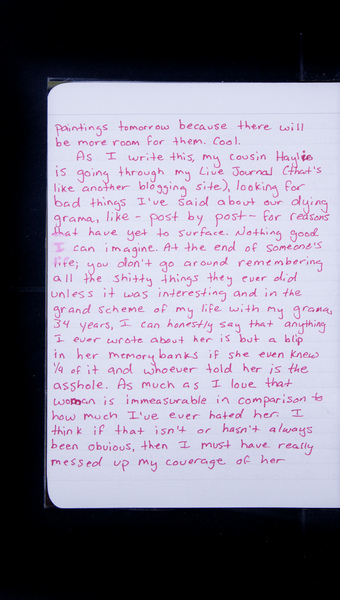 paintings tomorrow because there will
be more room for them. Cool.
As I write this, my cousin Haylie
is going through my Live Journal (that's
like another blogging site), looking for
bad things I've said about our dying
grama, like - post by post - for reasons
that have yet to surface. Nothing good
I can imagine. At the end of someone's
life, you don't go around remembering
all the shitty things they ever did
unless it was interesting and in the
grand scheme of my life with my grama,
34 years, I can honestly say that anything
I ever wrote about her is but a blip
in her memory banks if she even knew
1/4 of it and whoever told her is the
asshole. As much as I love that
woman is immeasurable in comparison to
how much I've ever hated her. I
think if that isn't or hasn't always
been obvious, then I must have really
messed up my coverage of her